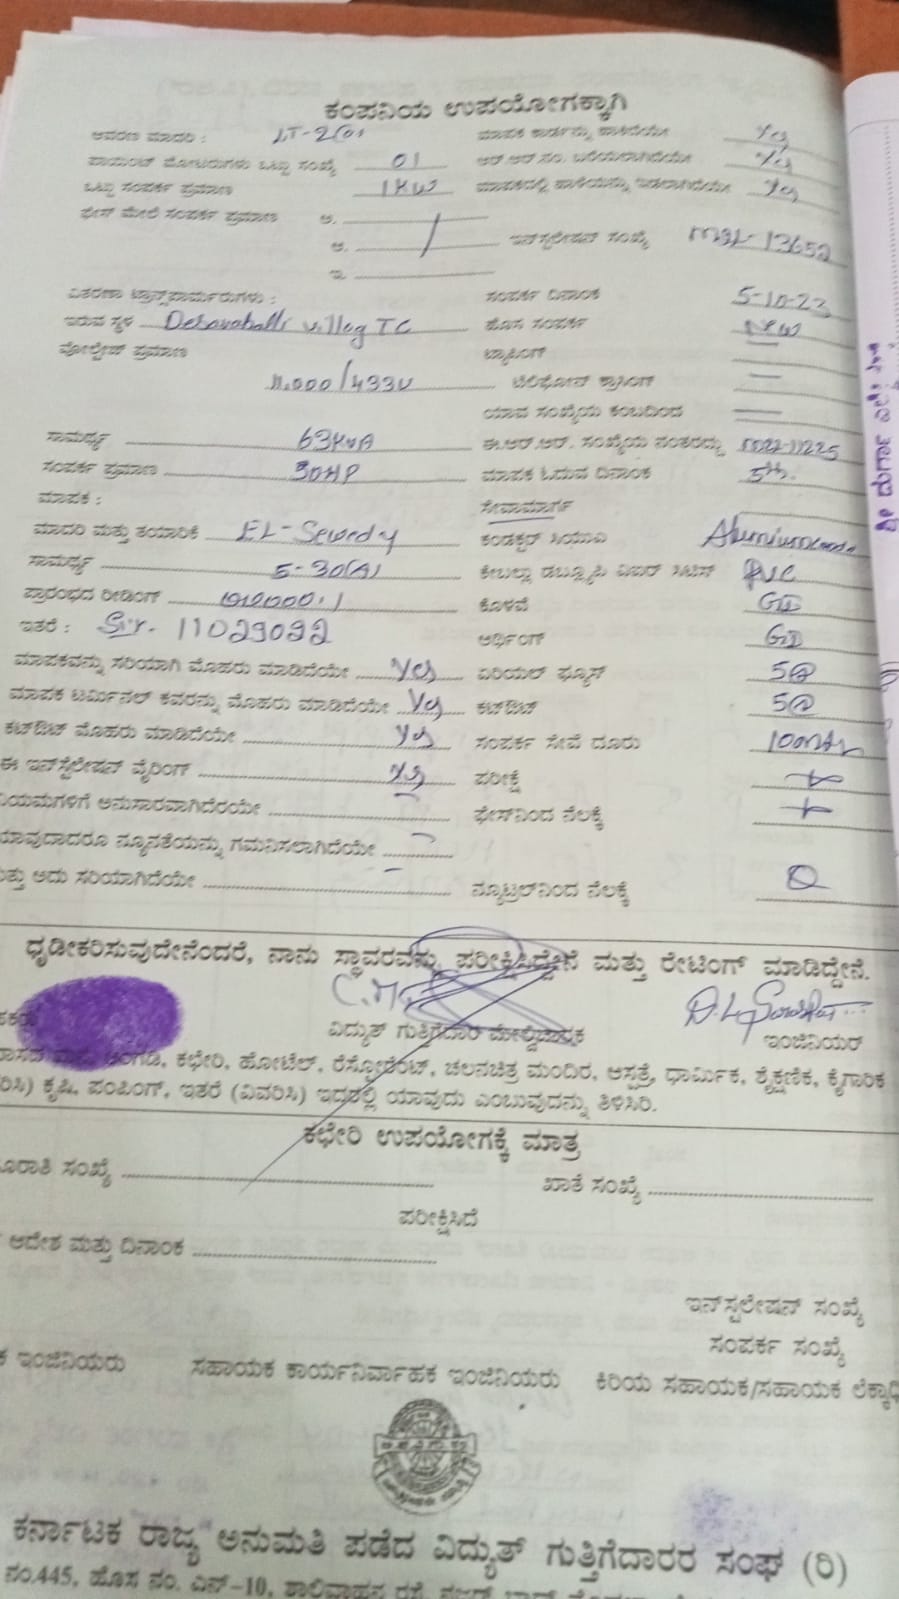 ಕಂಪನಿಯ ಉಪಯೋಗಕ್ಕಾಗಿ
ಆವರಣ ಮಾದರಿ : LT-2(a) ಮಾಪಕ ಕಾರ್ಡನ್ನು ಹಾಕಿದೆಯೇ Yes
ಪಾಯಿಂಟ್ ಮೋಟರುಗಳು ಒಟ್ಟು ಸಂಖ್ಯೆ 01 ಆರ್.ಆರ್.ನಂ. ಬರೆಯಲಾಗಿದೆಯೇ Yes
ಒಟ್ಟು ಸಂಪರ್ಕ ಪ್ರಮಾಣ 1KW ಮಾಪಕದಲ್ಲಿ ಹಾಳೆಯನ್ನು ಇಡಲಾಗಿದೆಯೇ Yes
ಫೇಸ್ ಮೇಲೆ ಸಂಪರ್ಕ ಪ್ರಮಾಣ ಅ.
ಆ. ಇನ್‌ಸ್ಟಲೇಷನ್ ಸಂಖ್ಯೆ 13652
ಇ.
ವಿತರಣಾ ಟ್ರಾನ್ಸ್‌ಫಾರ್ಮರುಗಳು : ಸಂಪರ್ಕ ದಿನಾಂಕ 5-10-23
ಇರುವ ಸ್ಥಳ TC ಹೊಸ ಸಂಪರ್ಕ New
ವೋಲ್ಟೇಜ್ ಪ್ರಮಾಣ ಟ್ಯಾಪಿಂಗ್ —
11.000/433V ಟೆಲಿಫೋನ್ ಕ್ರಾಸಿಂಗ್ —
ಯಾವ ಸಂಖ್ಯೆಯ ಕಂಬದಿಂದ —
ಸಾಮರ್ಥ್ಯ 63KVA ಈ.ಆರ್.ಆರ್. ಸಂಖ್ಯೆಯ ನಂತರದ್ದು 11225
ಸಂಪರ್ಕ ಪ್ರಮಾಣ 30HP ಮಾಪಕ ಓದುವ ದಿನಾಂಕ 5th.
ಮಾಪಕ : ಸೇವಾಮಾರ್ಗ
ಮಾದರಿ ಮತ್ತು ತಯಾರಿಕೆ EL-Sewedy ಕಂಡಕ್ಟರ್
ಸಾಮರ್ಥ್ಯ 5-30(A) PVC
ಪ್ರಾರಂಭದ ರೀಡಿಂಗ್ ಕೊಳವೆ GI
ಇತರೆ : Sr. 11029092 ಅರ್ಥಿಂಗ್ GI
ಮಾಪಕವನ್ನು ಸರಿಯಾಗಿ ಮೊಹರು ಮಾಡಿದೆಯೇ Yes ಏರಿಯಲ್ ಫ್ಯೂಸ್ 5@
ಮಾಪಕ ಟರ್ಮಿನಲ್ ಕವರನ್ನು ಮೊಹರು ಮಾಡಿದೆಯೇ Yes ಕಟ್‌ಔಟ್ 5@
ಕಟ್‌ಔಟ್ ಮೊಹರು ಮಾಡಿದೆಯೇ Yes ಸಂಪರ್ಕ ಸೇವೆ ದೂರು
ಈ ಇನ್‌ಸ್ಟಲೇಷನ್ ವೈರಿಂಗ್ Yes ಪರೀಕ್ಷೆ +
ನಿಯಮಗಳಿಗೆ ಅನುಸಾರವಾಗಿದೆರಯೇ — ಫೇಸ್‌ನಿಂದ ನೆಲಕ್ಕೆ +
ಯಾವುದಾದರೂ ನ್ಯೂನತೆಯನ್ನು ಗಮನಿಸಲಾಗಿದೆಯೇ —
ಮತ್ತು ಅದು ಸರಿಯಾಗಿದೆಯೇ — ನ್ಯೂಟ್ರಲ್‌ನಿಂದ ನೆಲಕ್ಕೆ 0
ಧೃಡೀಕರಿಸುವುದೇನೆಂದರೆ, ನಾನು ಸ್ಥಾವರವನ್ನು ಪರೀಕ್ಷಿಸಿದ್ದೇನೆ ಮತ್ತು ರೇಟಿಂಗ್ ಮಾಡಿದ್ದೇನೆ.
ವಿದ್ಯುತ್ ಗುತ್ತಿಗೆದಾರ ಮೇಲ್ವಿಚಾರಕ ಇಂಜಿನಿಯರ್
ಅಂಗಡಿ, ಕಛೇರಿ, ಹೋಟೆಲ್, ರೆಸ್ಟೋರೆಂಟ್, ಚಲನಚಿತ್ರ ಮಂದಿರ, ಆಸ್ಪತ್ರೆ, ಧಾರ್ಮಿಕ, ಶೈಕ್ಷಣಿಕ, ಕೈಗಾರಿಕ
ರಿಸಿ) ಕೃಷಿ, ಪಂಪಿಂಗ್, ಇತರೆ (ವಿವರಿಸಿ) ಇದರಲ್ಲಿ ಯಾವುದು ಎಂಬುವುದನ್ನು ತಿಳಿಸಿರಿ.
ಕಛೇರಿ ಉಪಯೋಗಕ್ಕೆ ಮಾತ್ರ
ಸಂಖ್ಯೆ ಖಾತೆ ಸಂಖ್ಯೆ
ಪರೀಕ್ಷಿಸಿದೆ
ಆದೇಶ ಮತ್ತು ದಿನಾಂಕ
ಇನ್‌ಸ್ಟಲೇಷನ್ ಸಂಖ್ಯೆ
ಸಂಪರ್ಕ ಸಂಖ್ಯೆ
ಕ ಇಂಜಿನಿಯರು ಸಹಾಯಕ ಕಾರ್ಯನಿರ್ವಾಹಕ ಇಂಜಿನಿಯರು ಕಿರಿಯ ಸಹಾಯಕ/ಸಹಾಯಕ ಲೆಕ್ಕಾಧಿ
ಕರ್ನಾಟಕ ರಾಜ್ಯ ಅನುಮತಿ ಪಡೆದ ವಿದ್ಯುತ್ ಗುತ್ತಿಗೆದಾರರ ಸಂಘ (ರಿ)
ನಂ.445, ಹೊಸ ನಂ. ಎನ್-10, ಶಾಲಿವಾಹನ ರಸ್ತೆ,